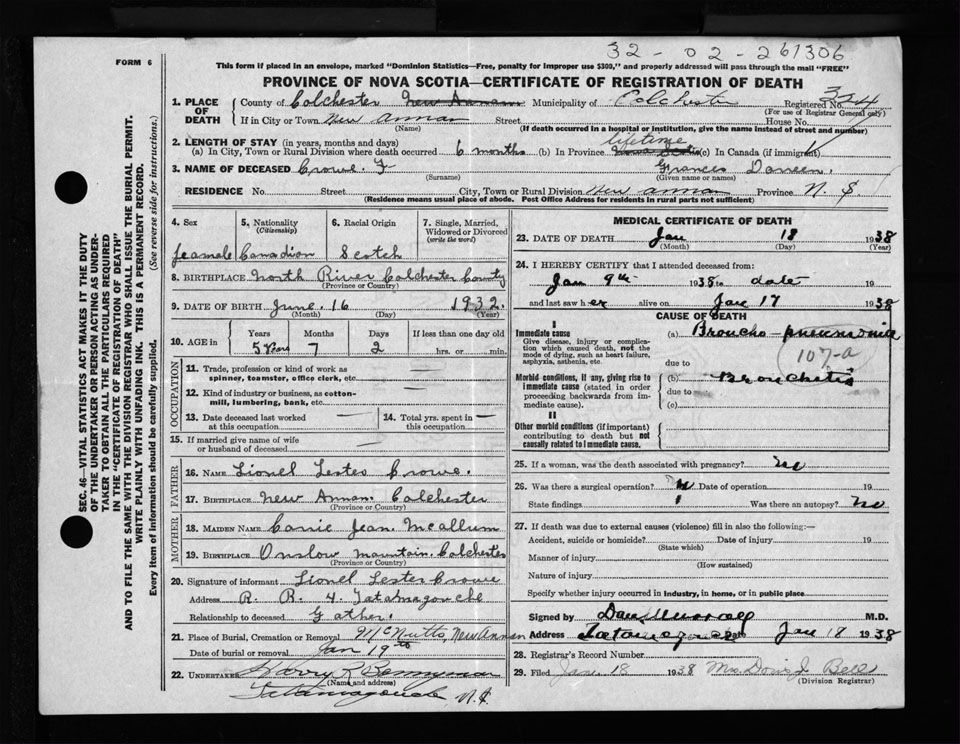 32-02-261306
FORM 6
This form if placed in an envelope, marked "Dominion Statistics—Free, penalty for improper use $300," and properly addressed will pass through the mail "FREE"
PROVINCE OF NOVA SCOTIA—CERTIFICATE OF REGISTRATION OF DEATH
1. PLACE OF DEATH County of Colchester New Annan Municipality of Colchester Registered No. 324
(For use of Registrar General only)
If in City or Town New Annan Street House No.
(Name) (If death occurred in a hospital or institution, give the name instead of street and number)
2. LENGTH OF STAY (in years, months and days) lifetime
(a) In City, Town or Rural Division where death occurred 6 months (b) In Province Nova Scotia (c) In Canada (if immigrant)
3. NAME OF DECEASED Crowe. F Frances Doreen.
(Surname) (Given name or names)
RESIDENCE No. Street City, Town or Rural Division New Annan Province N. S
(Residence means usual place of abode. Post Office Address for residents in rural parts not sufficient)
4. Sex 5. Nationality (Citizenship) 6. Racial Origin 7. Single, Married, Widowed or Divorced (write the word)
Feamale Canadian Scotch
8. BIRTHPLACE North River Colchester County
(Province or Country)
9. DATE OF BIRTH June. 16 1932.
(Month) (Day) (Year)
10. AGE in Years Months Days If less than one day old
5 years 7 2 hrs. or min.
OCCUPATION
11. Trade, profession or kind of work as spinner, teamster, office clerk, etc. —
12. Kind of industry or business, as cotton-mill, lumbering, bank, etc. —
13. Date deceased last worked at this occupation — 14. Total yrs. spent in this occupation —
15. If married give name of wife or husband of deceased —
FATHER
16. NAME Lionel Lester Crowe.
17. BIRTHPLACE New Annan. Colchester
(Province or Country)
MOTHER
18. MAIDEN NAME Carrie Jean McCallum
19. BIRTHPLACE Onslow Mountain. Colchester
(Province or Country)
20. Signature of informant Lionel Lester Crowe
Address R. R. 4. Tatamagouche
Relationship to deceased Father.
21. Place of Burial, Cremation or Removal McNutts, New Annan
Date of burial or removal Jan 19th
22. UNDERTAKER Harry R
(Name and address)
Tatamagouche N.S.
MEDICAL CERTIFICATE OF DEATH
23. DATE OF DEATH Jan 18 1938
(Month) (Day) (Year)
24. I HEREBY CERTIFY that I attended deceased from:
Jan 9th 1938 to date
and last saw her alive on Jan 17 1938
CAUSE OF DEATH
I
Immediate cause (a) Broncho-pneumonia
Give disease, injury or complication which caused death, not the mode of dying, such as heart failure, asphyxia, asthenia, etc.
due to 107-a
Morbid conditions, if any, giving rise to immediate cause (stated in order proceeding backwards from immediate cause). (b) Bronchetis
due to
(c)
II
Other morbid conditions (if important) contributing to death but not causally related to immediate cause.
25. If a woman, was the death associated with pregnancy? no
26. Was there a surgical operation? Date of operation 19
State findings Was there an autopsy? no
27. If death was due to external causes (violence) fill in also the following:—
Accident, suicide or homicide? Date of injury 19
(State which)
Manner of injury
(How sustained)
Nature of injury
Specify whether injury occurred in Industry, in home, or in public place
Signed by Dan Murray M.D.
Address Tatamagouche Date Jan 18 1938
28. Registrar's Record Number
29. Filed Jan. 18 1938 Mrs Doris J Bell
(Division Registrar)
SEC. 46—VITAL STATISTICS ACT MAKES IT THE DUTY
OF THE UNDERTAKER OR PERSON ACTING AS UNDER-
TAKER TO OBTAIN ALL THE PARTICULARS REQUIRED
IN THE "CERTIFICATE OF REGISTRATION OF DEATH"
AND TO FILE THE SAME WITH THE DIVISION REGISTRAR WHO SHALL ISSUE THE BURIAL PERMIT.
WRITE PLAINLY WITH UNFADING INK. THIS IS A PERMANENT RECORD.
Every item of information should be carefully supplied. (See reverse side for instructions.)